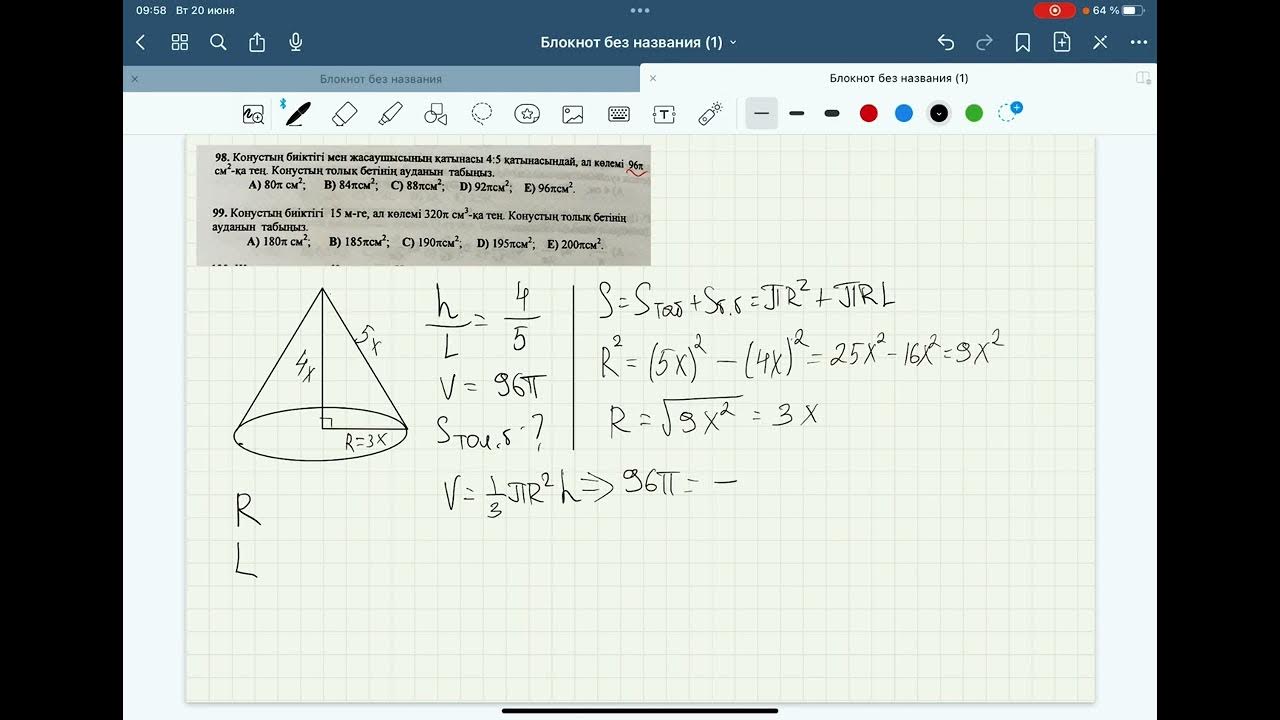 09:58 Вт 20 июня
64 %
Блокнот без названия (1)
Блокнот без названия
Блокнот без названия (1)
98. Конустың биіктігі мен жасаушысының қатынасы 4:5 қатынасындай, ал көлемі 96π
см²-қа тең. Конустың толық бетінің ауданын табыңыз.
A) 80π см²; B) 84πсм²; C) 88πсм²; D) 92πсм²; E) 96πсм².
99. Конустың биіктігі 15 м-ге, ал көлемі 320π см³-қа тең. Конустың толық бетінің
ауданын табыңыз.
A) 180π см²; B) 185πсм²; C) 190πсм²; D) 195πсм²; E) 200πсм².
4x
5x
R=3x
R
L
h/L = 4/5
V = 96π
Sтол.б-?
S=Sтаб+Sб.б=πR²+πRL
R²=(5x)²-(4x)²=25x²-16x²=9x²
R=√9x²=3x
V=1/3πR²h⇒96π=